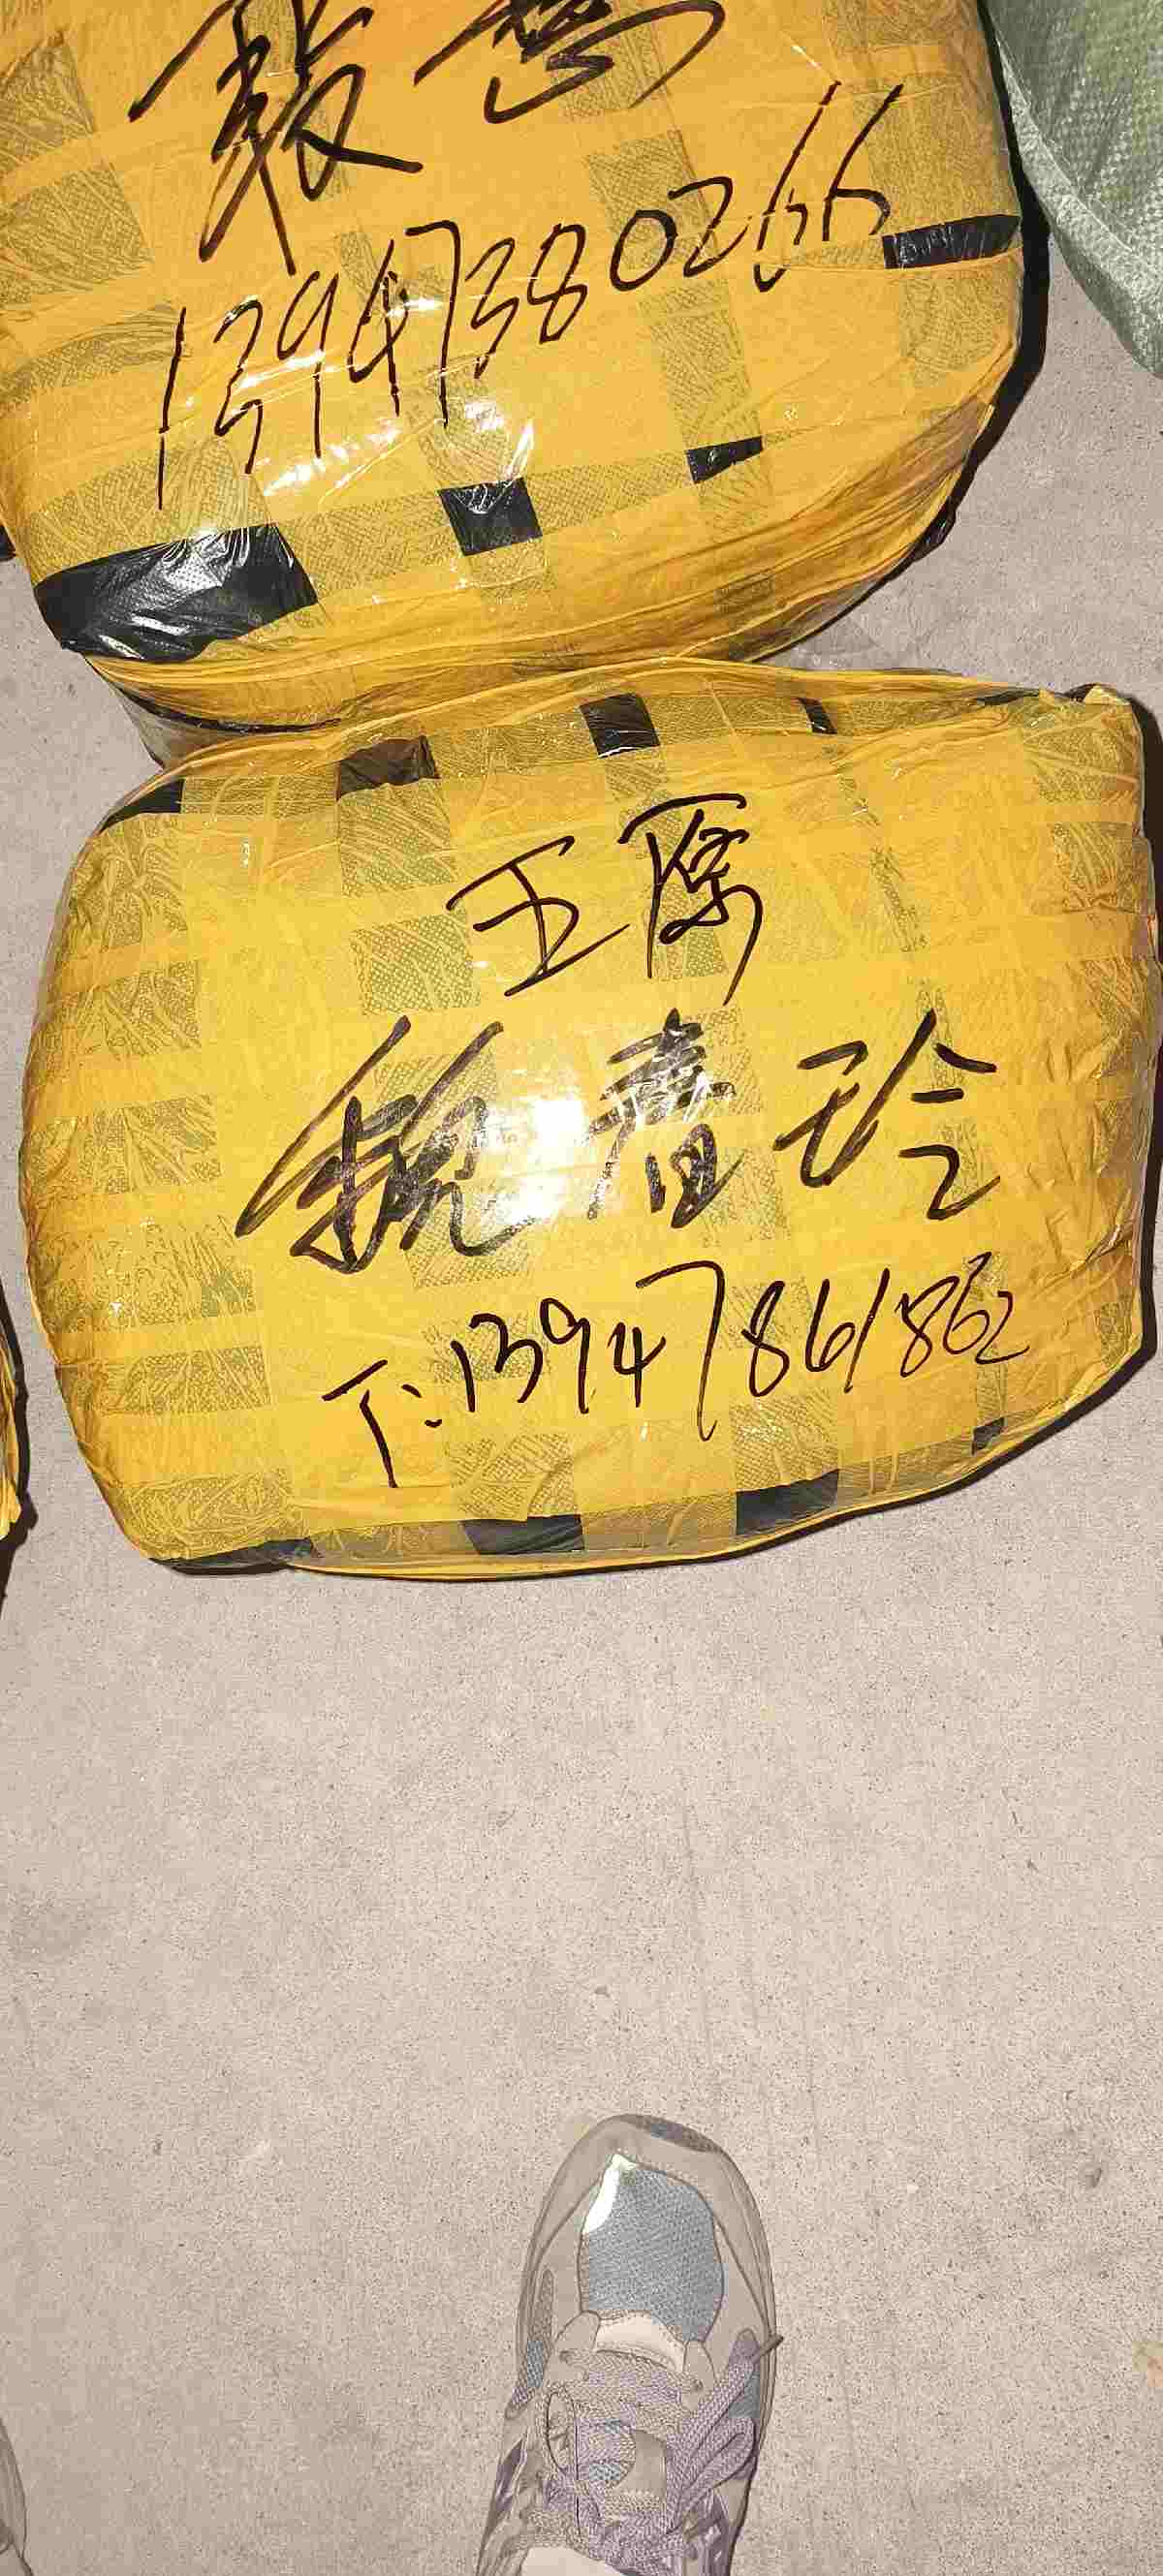 13947380266
王原
魏春玲
T:13947861862